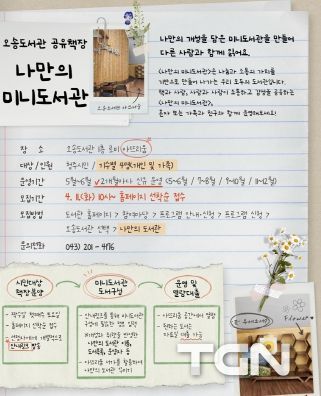 오송도서관 공유책장
나만의
미니도서관
나만의 개성을 담은 미니도서관을 만들어
다른 사람과 함께 읽어요.
<나만의 미니도서관>은 나눔과 소통의 가치를
기반으로 만들어 나가는 우리 모두의 도서관입니다.
책과 사람, 사람과 사람이 소통하고 감명을 공유하는
<나만의 미니도서관>,
혼자 또는 가족과 친구와 함께 운영해보세요!
장 소 오송도서관 1층 로비 아뜨리움
대상 / 인원 청주시민 / 기수별 4명(개인 및 가족)
운영기간 5월~6월 ✓2개월마다 신규 운영 (5~6월 / 7~8월 / 9~10월 / 11~12월)
모집기간 4. 11.(화) 10시~ 홈페이지 선착순 접수
모집방법 도서관 홈페이지 > 참여마당 > 프로그램 안내·신청 > 프로그램 신청 >
오송도서관 선택 > 나만의 도서관
문의전화 043) 201 - 4176
시민대상
책장분양
홈페이지 선착순 접수
미니도서관
도서구성
운영 및
열람대출
Flower
TGN